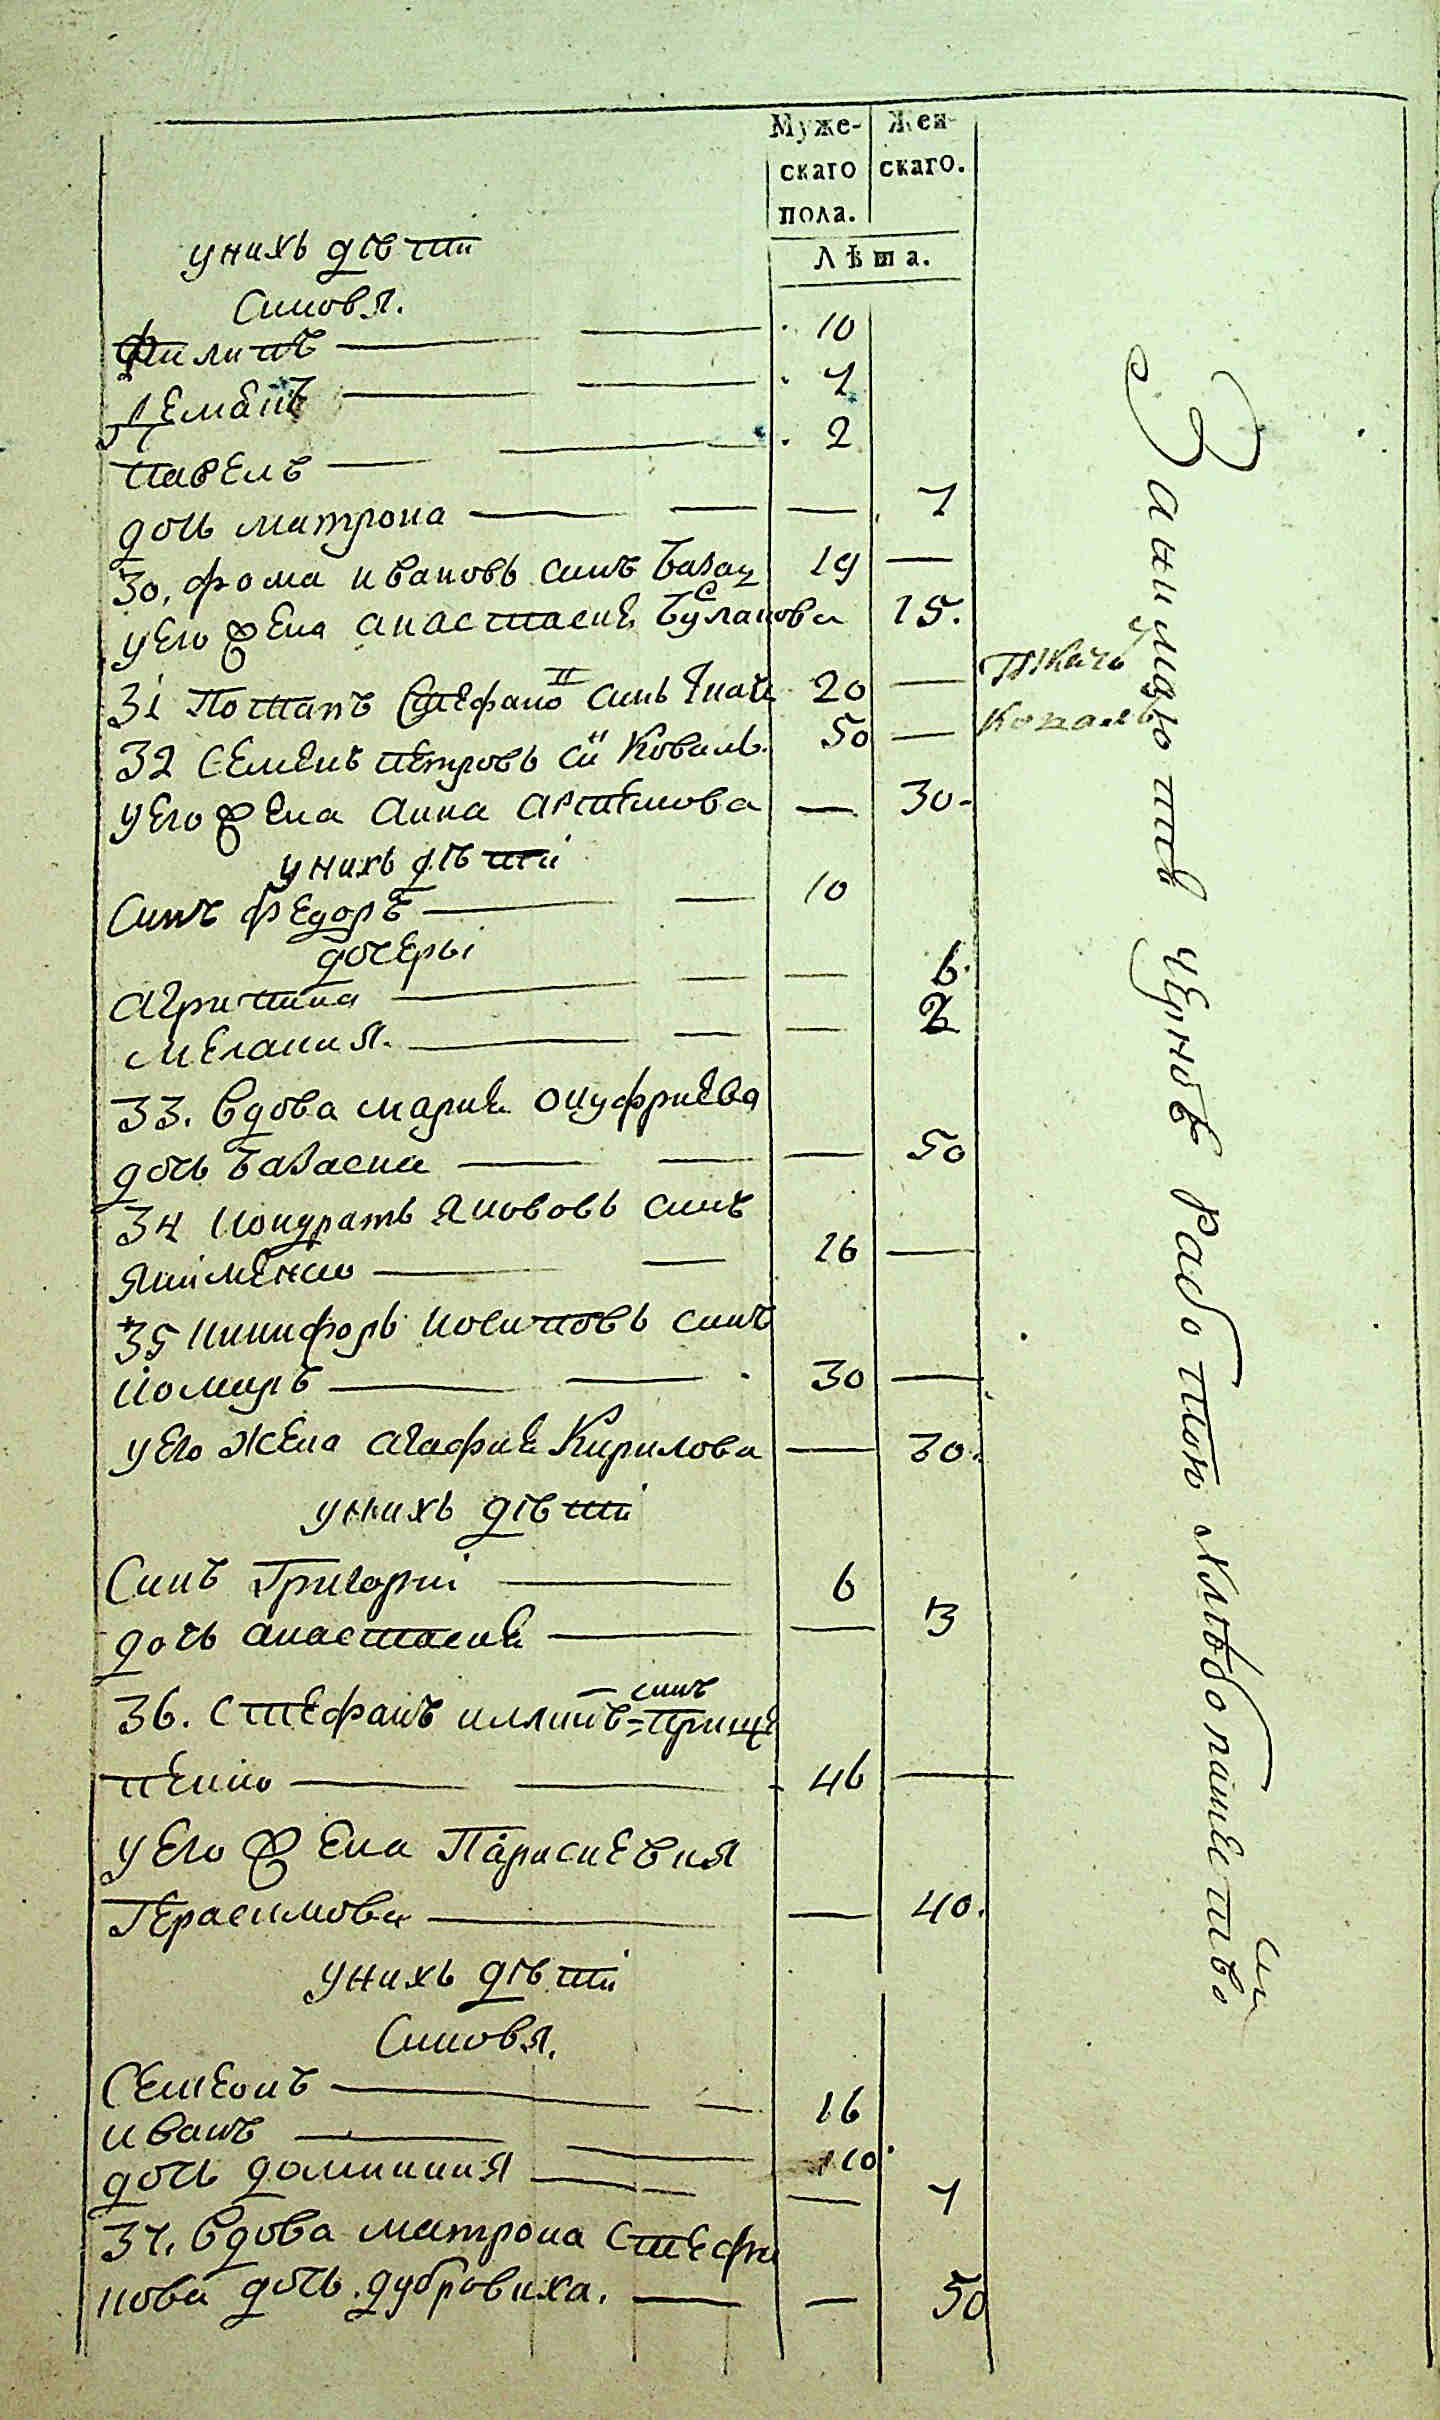 Муже- Жен-
скаго скаго.
пола.
Лѣта.
унихъ дѣти
Синовя.
Филипъ — 10
Демянъ — 7
Павелъ — 2
дочь матрона — — 7
30, фома ивановъ синъ 19 —
уего жена анастасие 15.
31 Потапъ Стефано синъ Ткачь 20 — Ткачь
32 Семенъ петровъ си Коваль. 50 — Коваль
уего жена анна артемова — 30.
унихъ дѣти
Синъ федоръ — 10
дочеры
агрипина — — 6.
мелания. — — 2
33. вдова марие онуфриева
дочь — — 50
34 кондратъ якововъ синъ
Якименко — 16 —
35 никифоръ иосиповъ синъ
— 30 —
уего жена агафие Кирилова — 30.
унихъ дѣти
Синъ Григорий — 6
дочь анастасие — — 3
36. Стефанъ иллинъ = синъ прище
пенко — 46 —
уего жена Парасиевия
Герасимова — — 40.
унихъ дѣти
Синовя.
Семеонъ — 16
иванъ — 10
дочь доминикия — — 7
37. вдова матрона Стефа
нова дочь дубровиха. — — 50
Занимаются чорною работою и хлѣбопашество